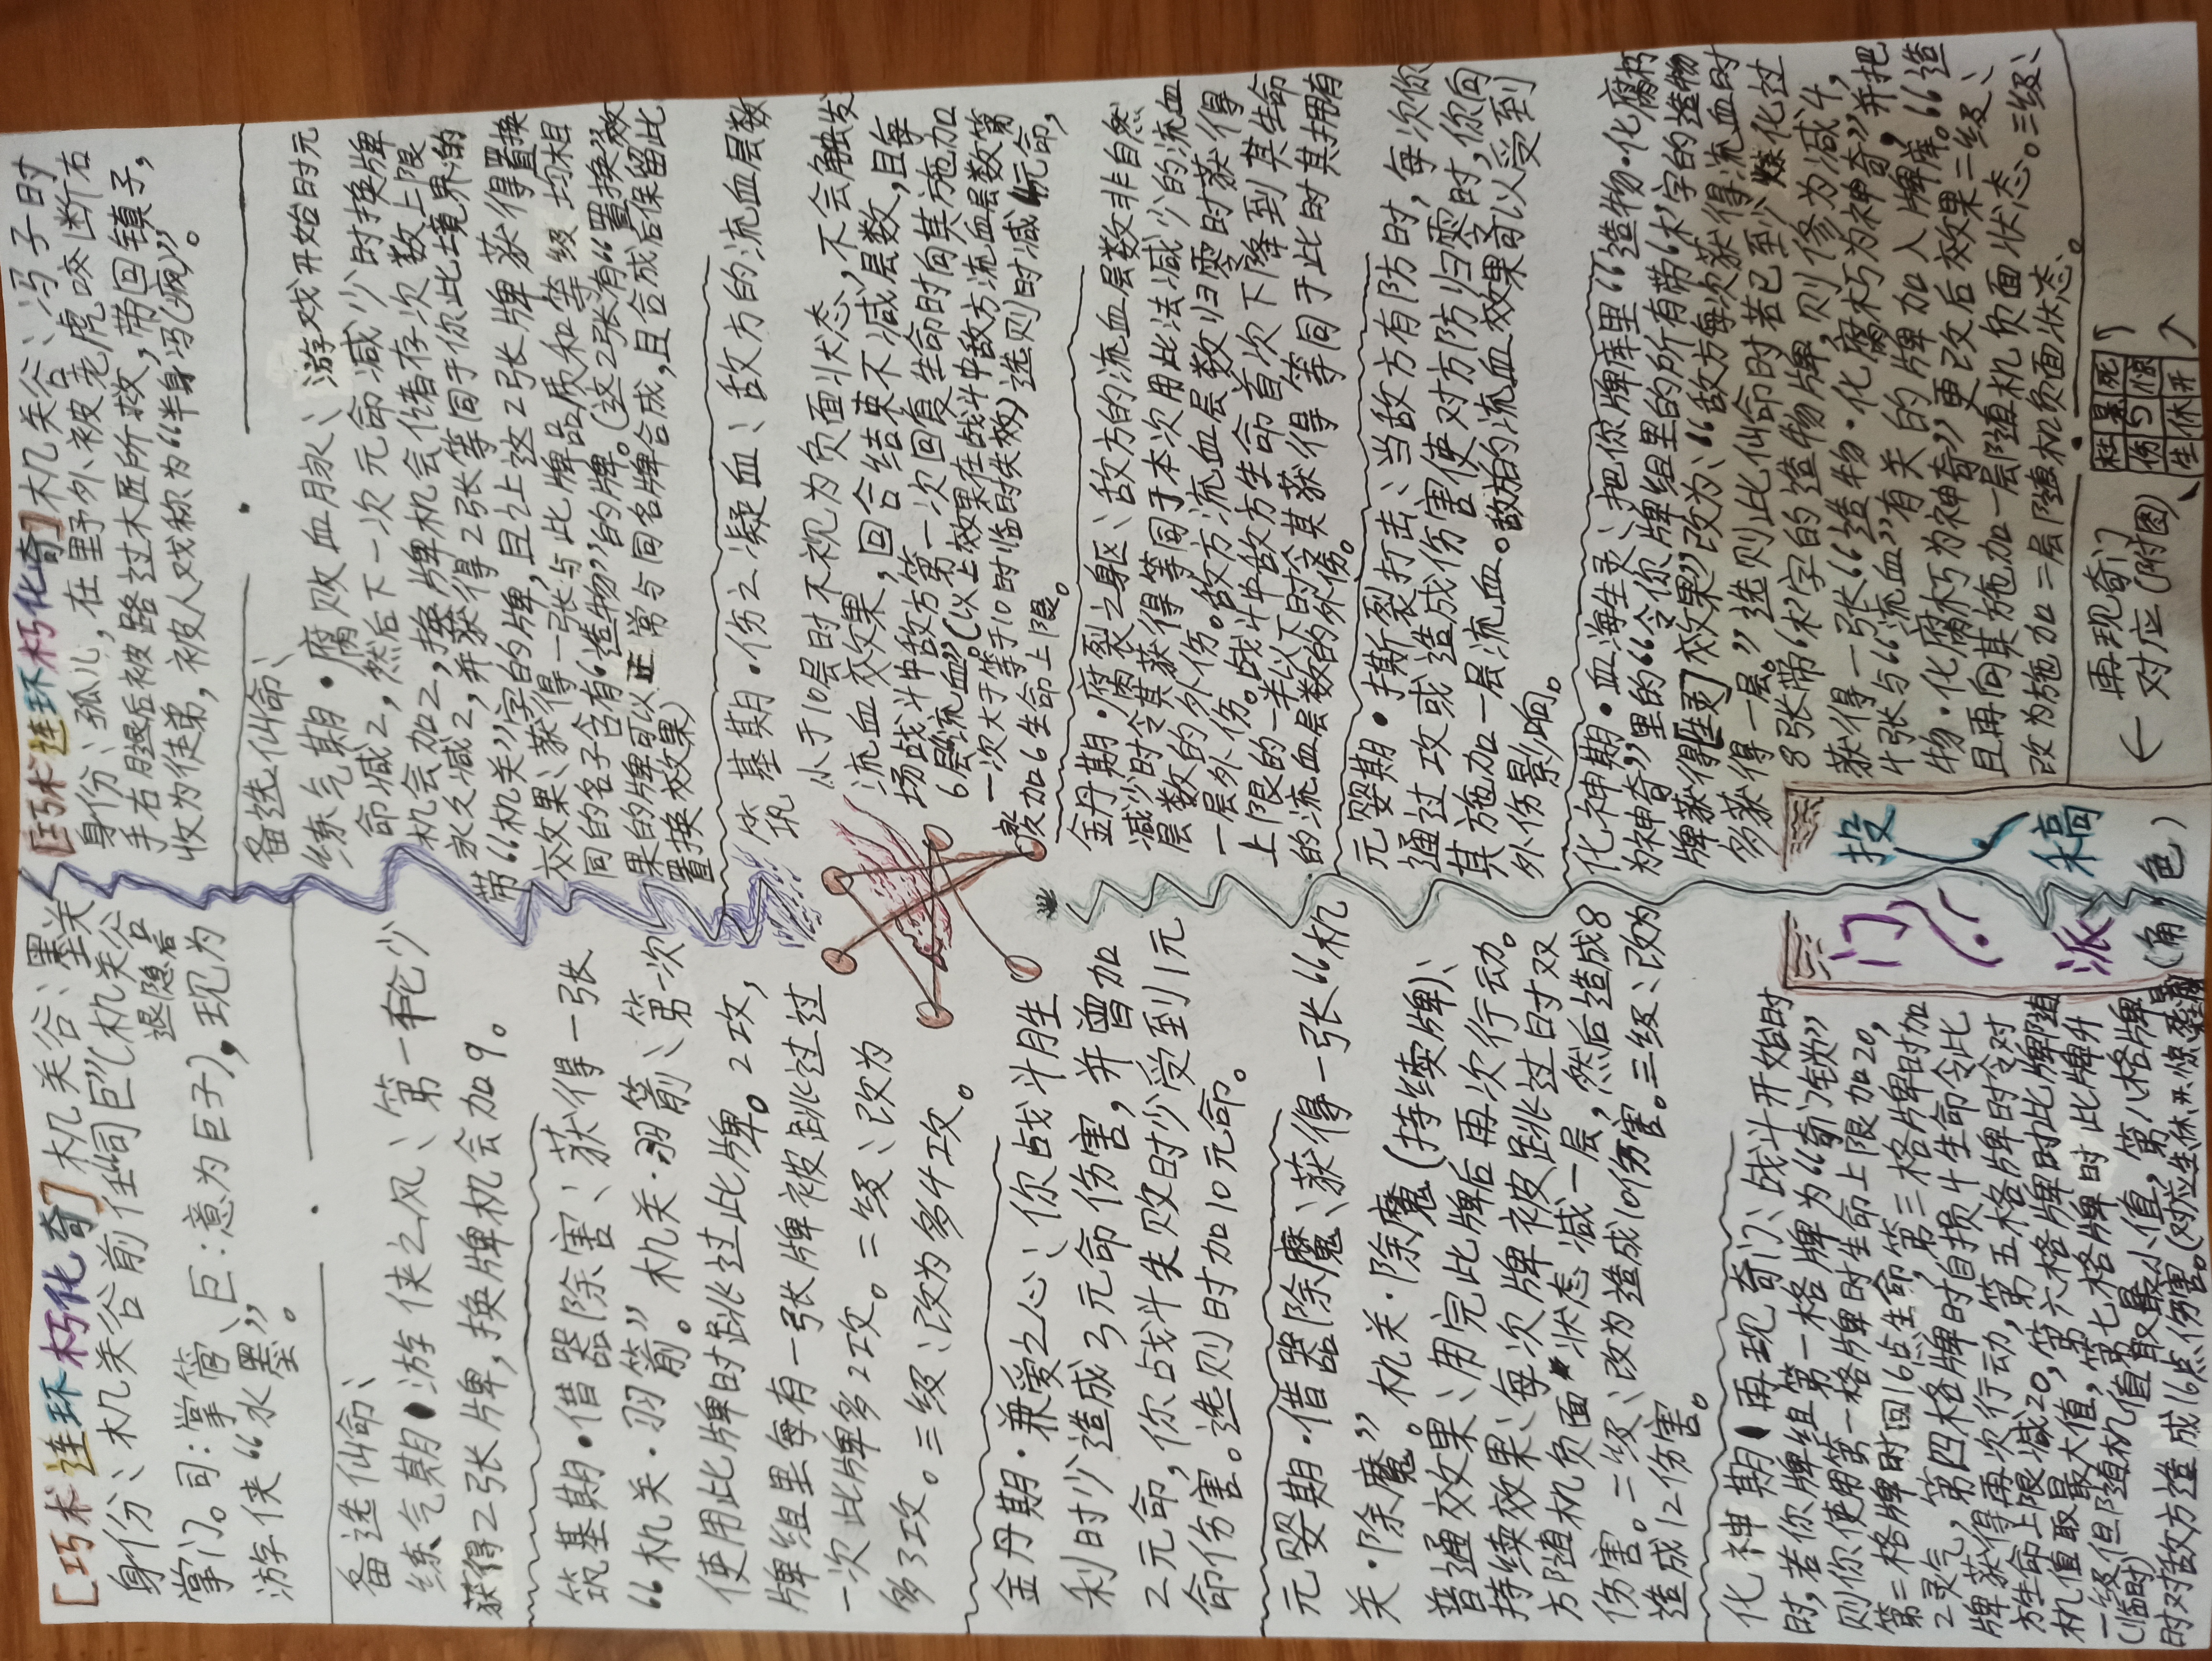 [巧术连环朽化奇]机关谷：墨关
身份：机关谷前任“司巨”(机关谷
退隐后
掌门。司：掌管、巨：意为巨子)，现为
游侠“水墨”。
备选仙命：
练气期·游侠之风：第一轮少
获得2张牌，换牌机会加9。
筑基期·借器除害：获得一张
“机关·羽箭”。机关·羽箭：第一次
使用此牌时跳过此牌。2攻，
牌组里每有一张牌被跳过过
一次此牌多2攻。二级：改为
多3攻。三级：改为多4攻。
金丹期·兼爱之心：你战斗胜
利时少造成3元命伤害，并曾加
2元命，你战斗失败时少受到1元
命伤害。选则时加10元命。
元婴期·借器除魔：获得一张“机
关·除魔”。机关·除魔(持续牌)：
普通效果：用完此牌后再次行动。
持续效果：每次牌被跳过时双
方随机负面状态减一层，然后造成8
伤害。二级：改为造成10伤害。三级：改为
造成12伤害。
化神期·再现奇门：战斗开始时
时，若你牌组第一格牌为“奇门锁”
则你使用第一格牌时生命上限加20，
第二格牌时回16点生命，第三格牌时加
2灵气，第四格牌时自损4生命令此
牌获得再次行动，第五格牌时令对
方生命上限减20，第六格牌时此牌随
机值取最大值，第七格牌时此牌升
一级但随机值取最小值，第八格牌
(临时)
时对敌方造成16点伤害。(对应生、休、开、惊、死
[巧术连环朽化奇]机关谷：冯子时
身份：孤儿，在野外被老虎咬断右
手右腿后被路过木匠所救，带回镇子，
收为徒弟，被人戏称为“半身冯(疯)”。
备选仙命：
练气期·腐败血脉：游戏开始时元
命减2，然后下一次元命减少时换牌
机会加2，换牌机会储存次数上限
永久减2，并获得2张等同于你此境界的
带“机关”字的牌，且让这2张牌获得置换
效果：获得一张与此牌品质和等级均相
同的名子含有“造物”的牌。(这2张有“置换”效
果的牌可以正常与同名牌合成，且合成后保留此
置换效果)
筑基期·伤之凝血：敌方的流血层数
小于10层时不视为负面状态，不会触发
流血效果，回合结束不减层数，且每
场战斗中敌方第一次回复生命时向其施加
6层“流血”。(以上效果在战斗中敌方流血层数第
一次大于等于10时临时失效)选则时减4元命，
加6生命上限。
金丹期·腐裂之躯：敌方的流血层数非自然
减少时令其获得等同于本次用此法减少的流血
层数的外伤。敌方流血层数归零时获得
一层外伤。战斗中敌方生命首次下降到其生命
上限的一半以下时令其获得等同于此时其拥有
的流血层数的外伤。
元婴期·撕裂打击：当敌方有防时，每次你
通过攻或造成伤害使对方防归零时，你向
其施加一层流血。敌方的流血效果可以受到
外伤影响。
化神期·血海生灵：把你牌库里“造物·化腐朽
为神奇”里的“令你牌组里的所有带‘木’字的造物
牌获得[生灵]效果”改为：“敌方每次获得流血时
多获得一层。”选则此仙命时若已至少炼化过
8张带‘木’字的造物牌，则修为减4，
获得一张“造物·化腐朽为神奇”，并把
4张与“流血”有关的牌加入牌库。“造
物·化腐朽为神奇”更改后效果二级：
且再向其施加一层随机负面状态。三级：
改为施加二层随机负面状态。
门派
投稿
(角色)
← 再现奇门
对应(附图)
杜景死
伤5惊
生休开